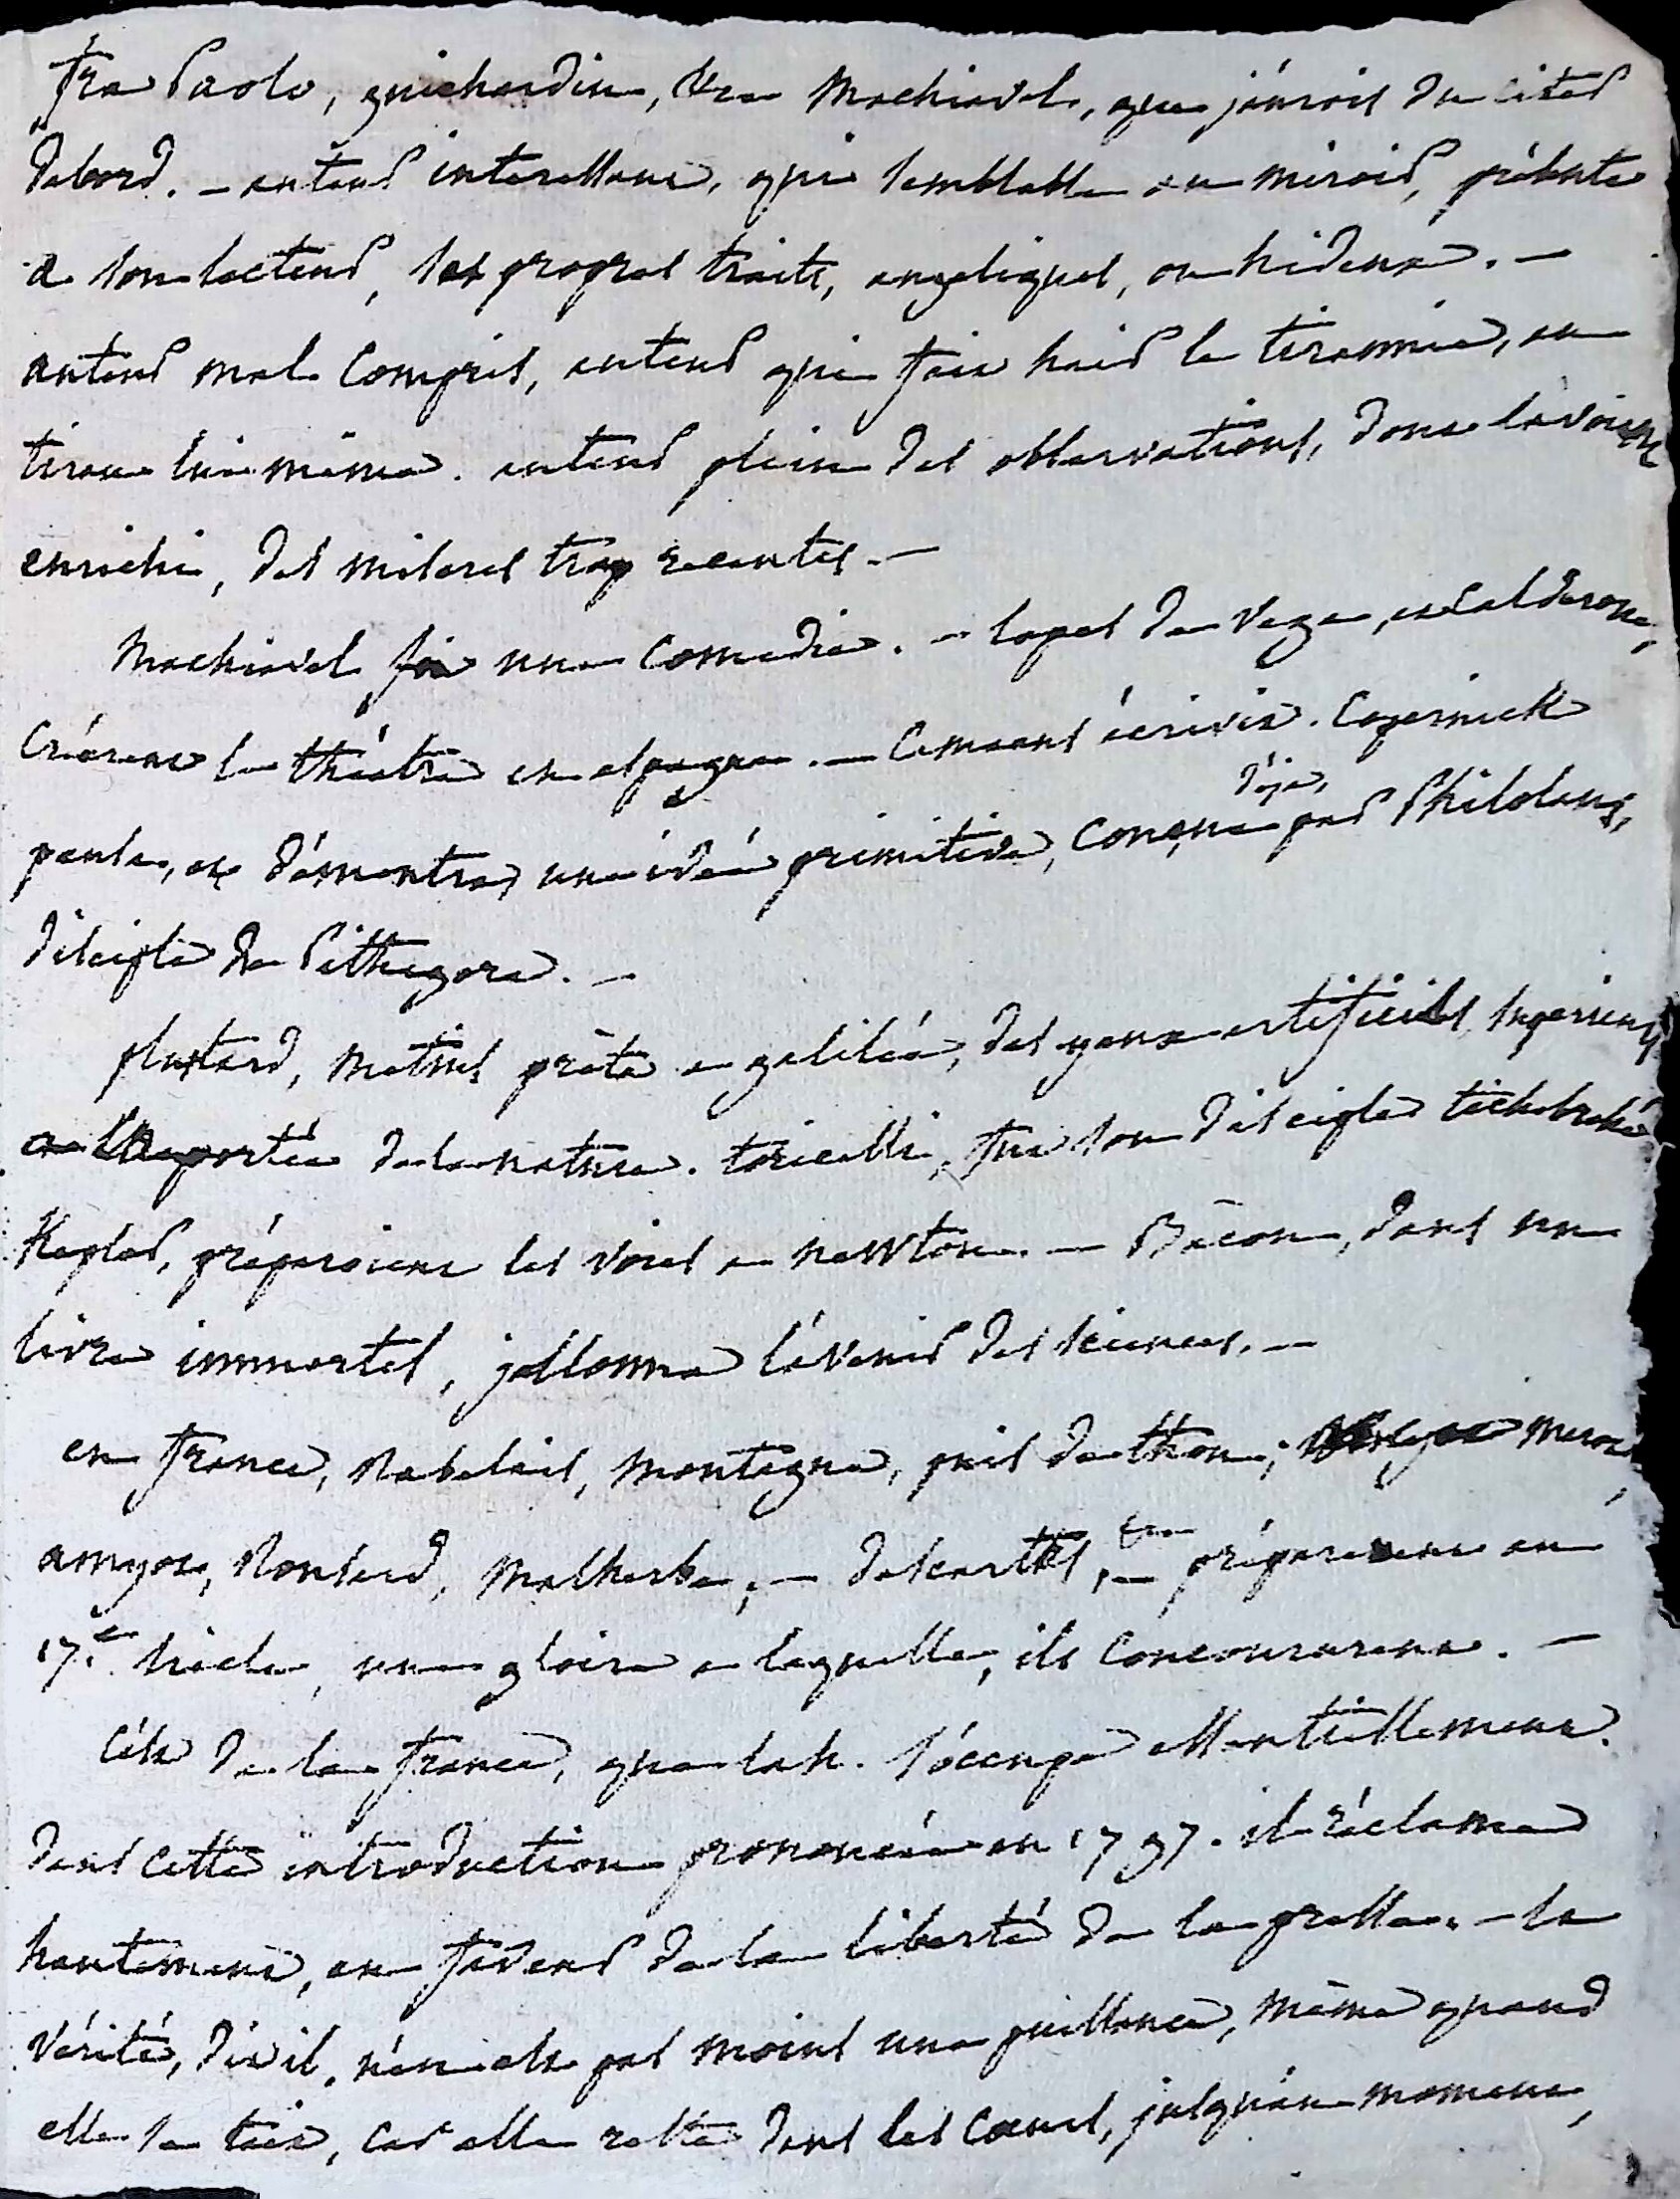 fra Paolo, guichardin, & Machiavel, que j'aurois du citer
d'abord. — auteur interessant, qui semblable au miroir, présente
a son lecteur, ses propres traits, angeliques, ou hideux. —
auteur mal compris, auteur qui fait hair la tirannie, au
tiran lui même. auteur plein des observations, dont l'avoient
enrichi, des miseres trop recentes. —
Machiavel fit une comedie. — lopes de Vega, et Calderone,
créerent le théatre en espagne. — Camoens écrivit. Copernick
déja,
pensa, et démontra, une idée primitive, conçue par Philolaus,
disciple de Pithagore. —
plustard, Metius prèta a galilée, des yeux artificiels superieurs
a la portée de la nature. toricelli, fut son disciple tichobrahé
Kepler, préparoient les voies a newton. — Bacon, dans un
livre immortel, jallonna l'avenir des sciences. —
en france, Rabelais, Montagne, puis de thou; Meze
amyot, Ronsard, Malherbe, — descartes, — préparerent au
17.e siècle, une gloire a laquelle, ils concoururent. —
C'est de la france, que lah. s'occupe essentiellement.
dans cette introduction prononcée en 1797. il réclama
hautement, en faveur de la liberté de la presse. — la
Vérité, dit il, n'en est pas moins une puissance, même quand
elle se tait, car elle reste dans les cœurs, jusqu'au moment,